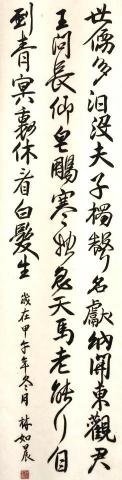 世儒多汩没夫子獨聲名獻納開東觀君
王問長卿皂鵰寒始急天馬老能行自
到青冥裏休看白髮生
歲在甲午年冬月 林如晨